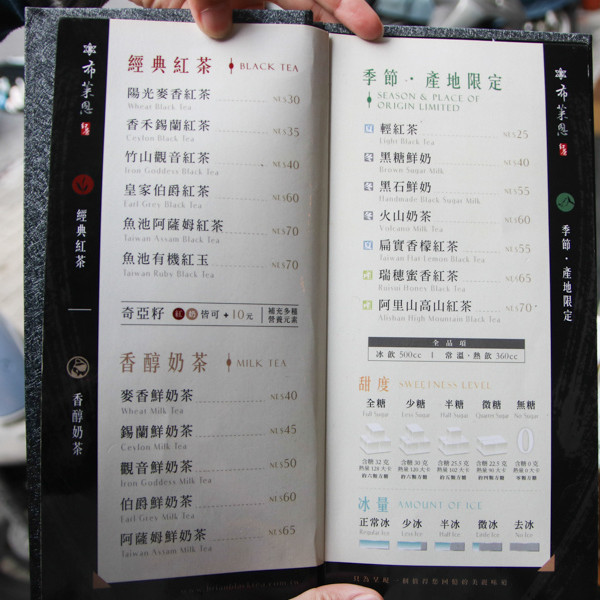 布萊恩
紅茶
經典紅茶
香醇奶茶
經典紅茶 BLACK TEA
陽光麥香紅茶 NT$30
Wheat Black Tea
香禾錫蘭紅茶 NT$35
Ceylon Black Tea
竹山觀音紅茶 NT$40
Iron Goddess Black Tea
皇家伯爵紅茶 NT$60
Earl Grey Black Tea
魚池阿薩姆紅茶 NT$70
Taiwan Assam Black Tea
魚池有機紅玉 NT$70
Taiwan Ruby Black Tea
奇亞籽 紅 奶 皆可 + 10元 補充多種
營養元素
香醇奶茶 MILK TEA
麥香鮮奶茶 NT$40
Wheat Milk Tea
錫蘭鮮奶茶 NT$45
Ceylon Milk Tea
觀音鮮奶茶 NT$50
Iron Goddess Milk Tea
伯爵鮮奶茶 NT$60
Earl Grey Milk Tea
阿薩姆鮮奶茶 NT$65
Taiwan Assam Milk Tea
季節・產地限定
SEASON & PLACE OF
ORIGIN LIMITED
夏 輕紅茶 NT$25
Light Black Tea
冬 黑糖鮮奶 NT$40
Brown Sugar Milk
冬 黑石鮮奶 NT$55
Handmade Black Sugar Milk
冬 火山奶茶 NT$60
Volcano Milk Tea
夏 扁實香檬紅茶 NT$55
Taiwan Flat Lemon Black Tea
瑞穗蜜香紅茶 NT$65
Ruisui Honey Black Tea
阿里山高山紅茶 NT$70
Alishan High Mountain Black Tea
全品項
冰飲 500cc | 常溫・熱飲 360cc
甜度 SWEETNESS LEVEL
全糖 少糖 半糖 微糖 無糖
Full Sugar Less Sugar Half Sugar Quarter Sugar No Sugar
0
冰量 AMOUNT OF ICE
正常冰 少冰 半冰 微冰 去冰
Regular Ice Less Ice Half Ice Little Ice No Ice
布萊恩
紅茶
季節・產地限定